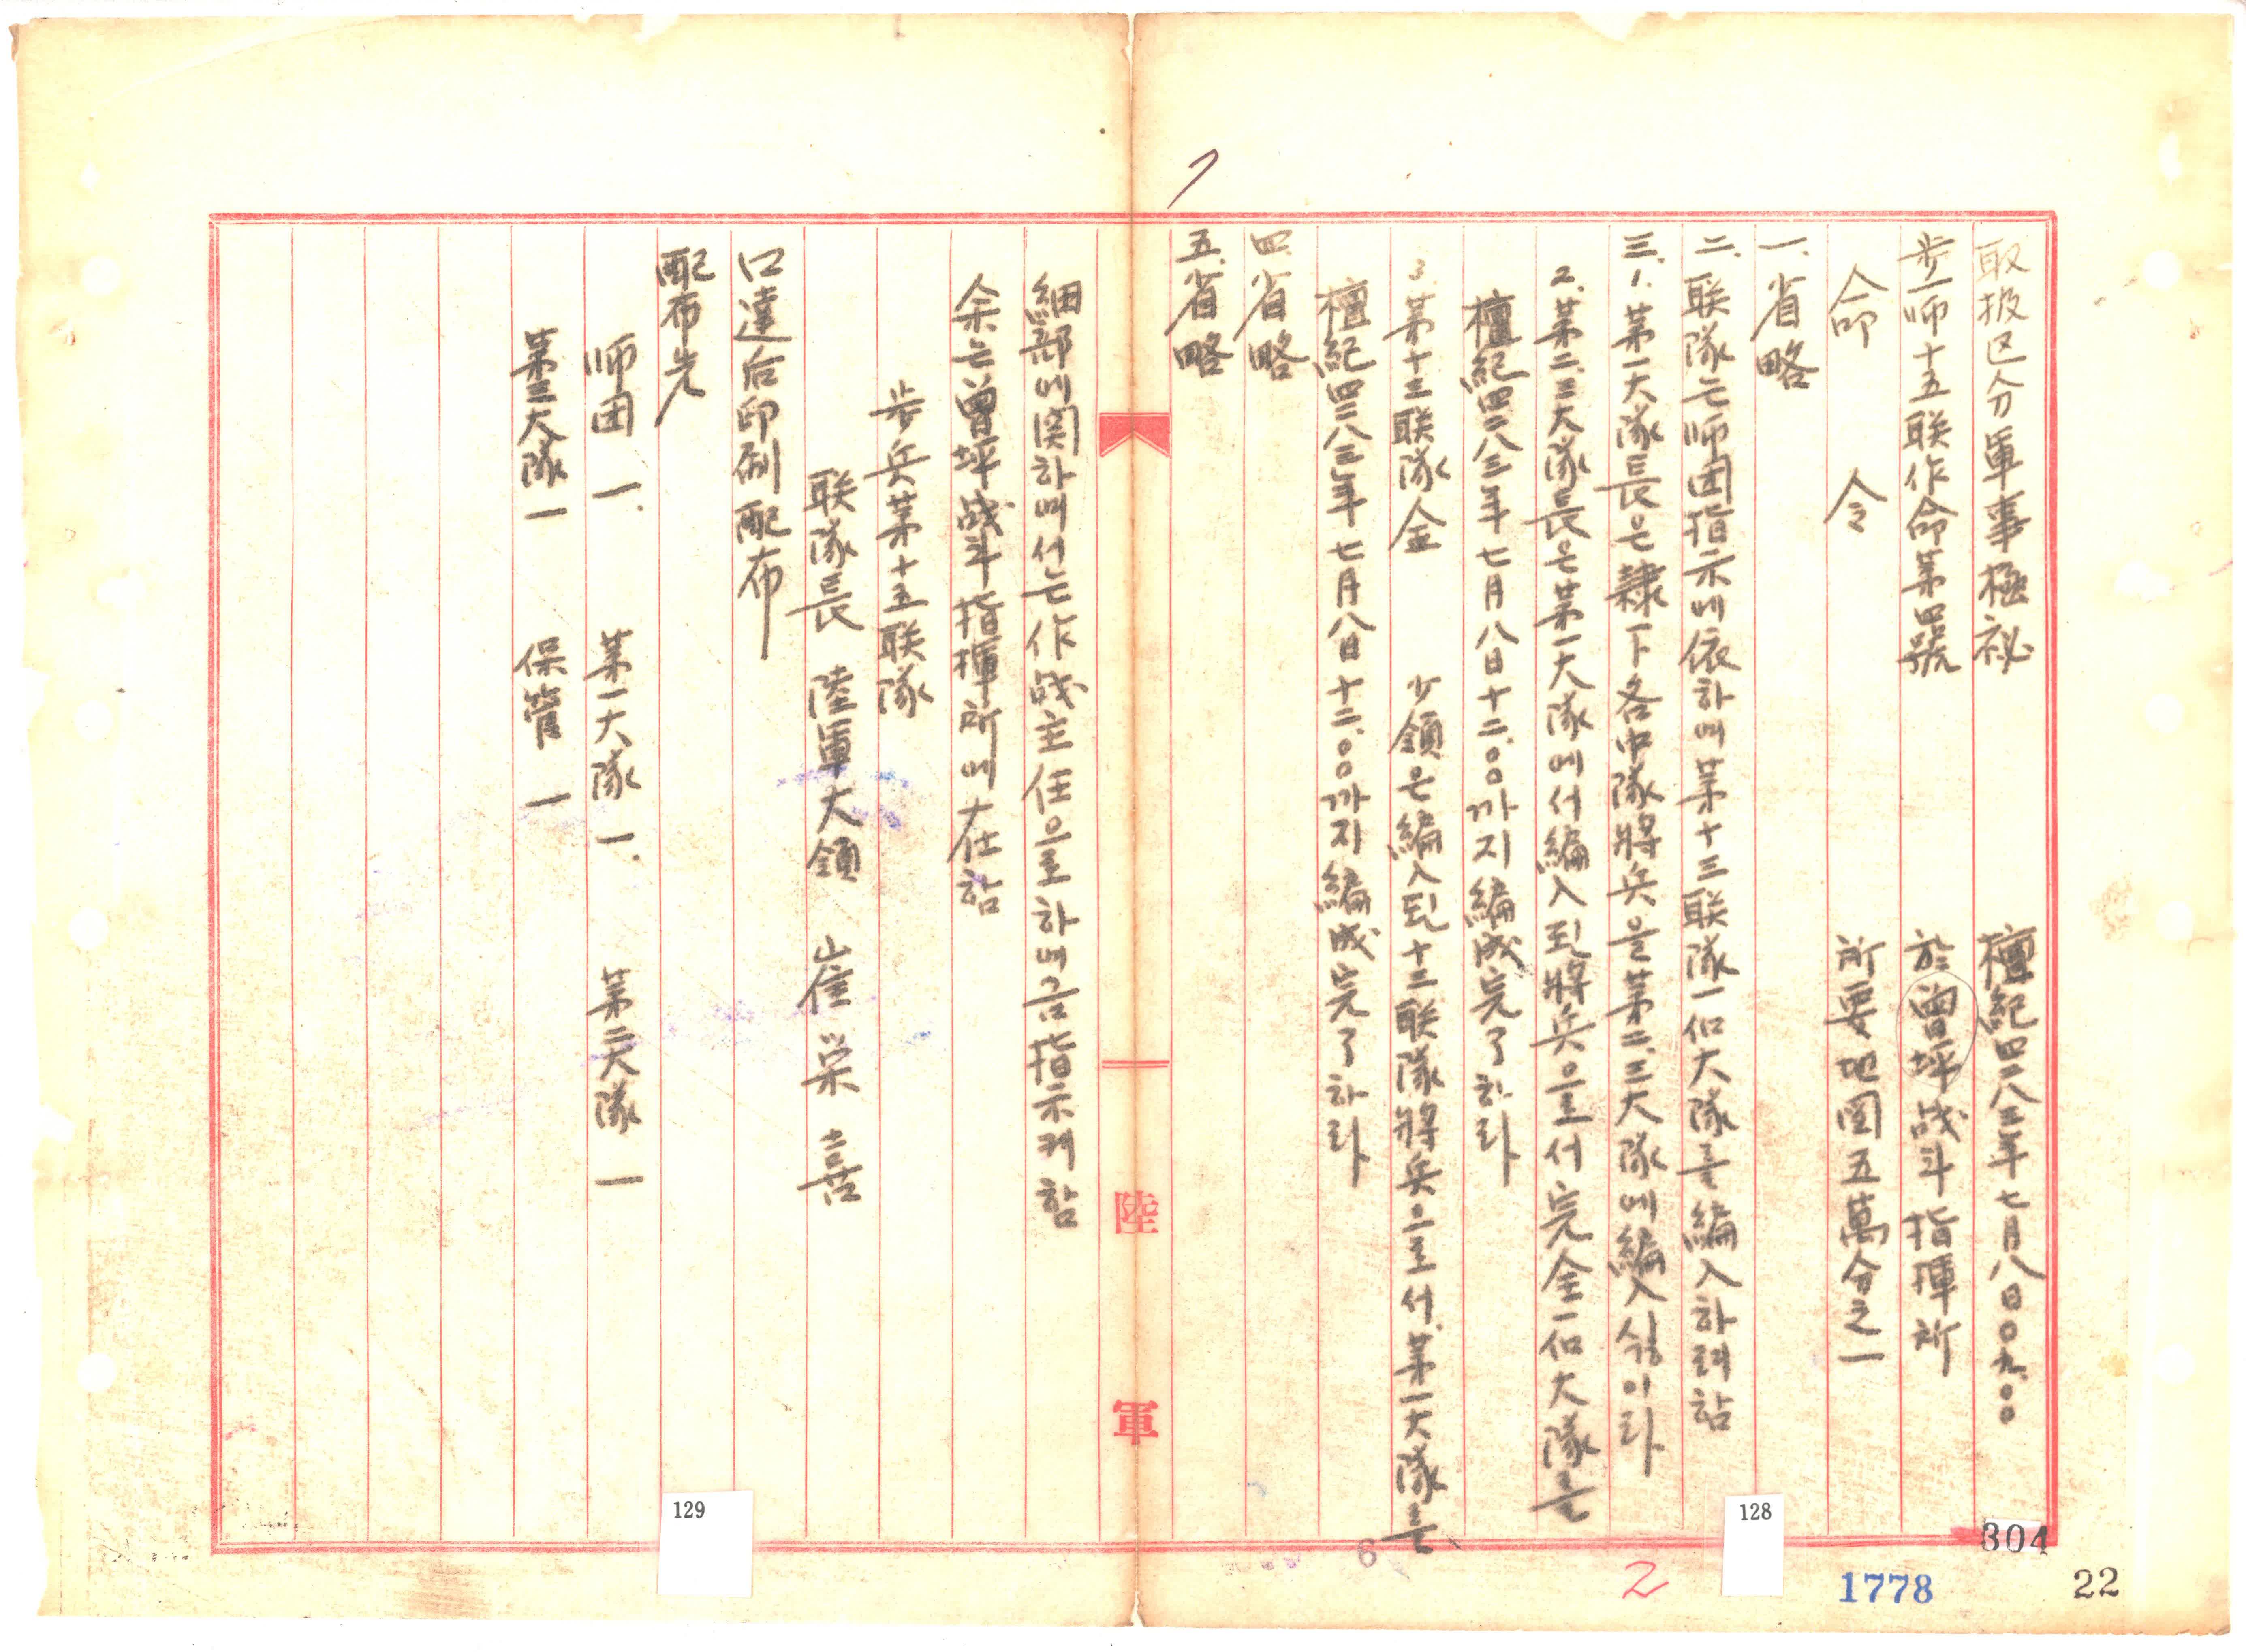 取扱区分軍事極祕
檀紀四二八三年七月八日〇九.〇〇
步一师十五联作命第四號
於曾坪战斗指揮所
命 令
所要地図五萬分之一
一. 省略
二. 联隊는师团指示에依하여第十三联隊一個大隊를編入하려함
三. 1. 第一大隊長은隷下各中隊將兵을第二.三大隊에編入식이라
2. 第二.三大隊長은第一大隊에서編入된將兵으로서完全一個大隊를
檀紀四二八三年七月八日十二.〇〇까지編成完了하라
3. 第十三联隊金 少領은編入된十三联隊將兵으로서.第一大隊를
檀紀四二八三年七月八日十二.〇〇까지編成完了하라
四. 省略
五. 省略
陸軍
細部에関하여서는作战主任으로하여금指示케함
余는曾坪战斗指揮所에在함
步兵第十五联隊
联隊長 陸軍大領 崔栄喜
口達后印刷配布
配布先
师团一. 第一大隊一. 第二大隊一
第三大隊一 保管一
129
128
304
1778
22
6
2
7